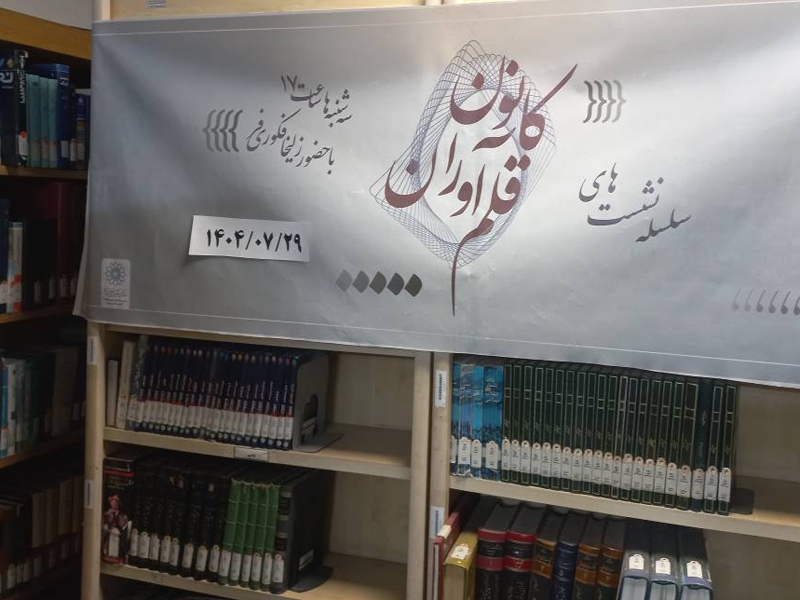 سلسله نشست های
کانون
قلم آوران
سه شنبه ها ساعت ۱۷
با حضور زلیخا فکوری فر
۱۴۰۴/۰۷/۲۹